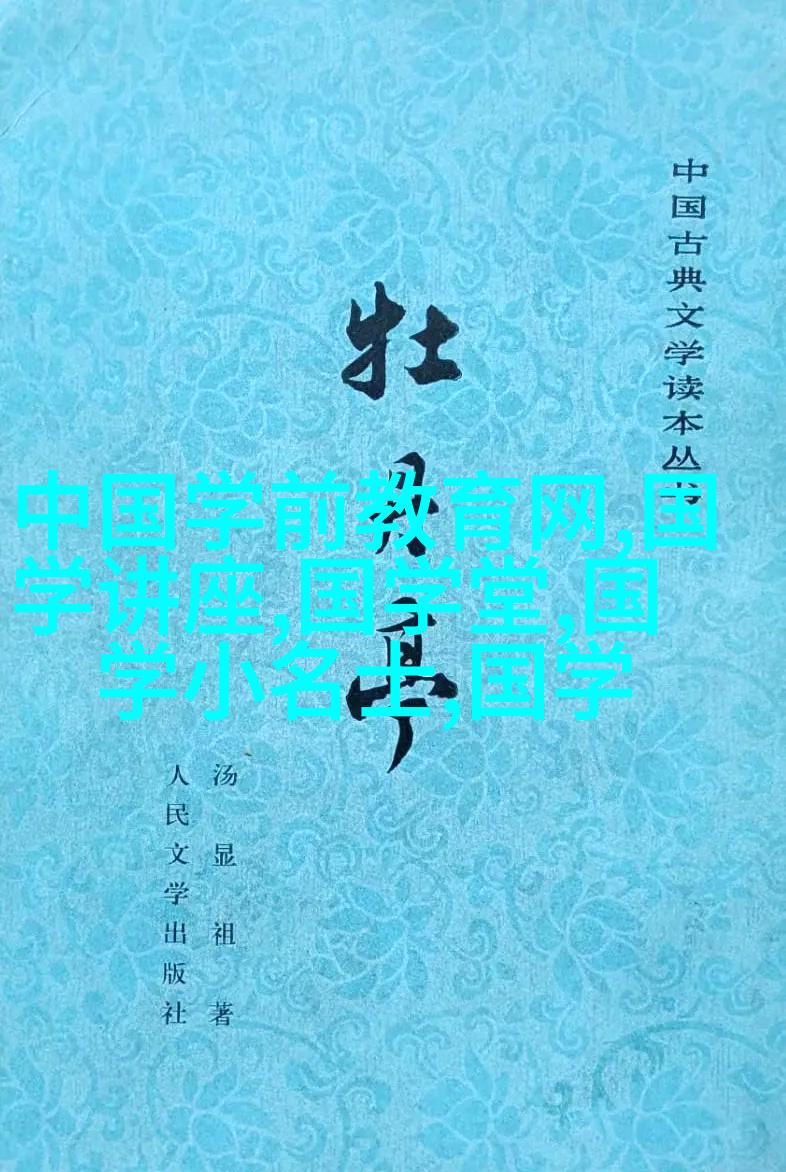 中国古典文学读本丛书
牡丹亭
中国学前教育网,国
学讲座,国学堂,国
学小名士,国学
汤显祖著
人民文学出版社